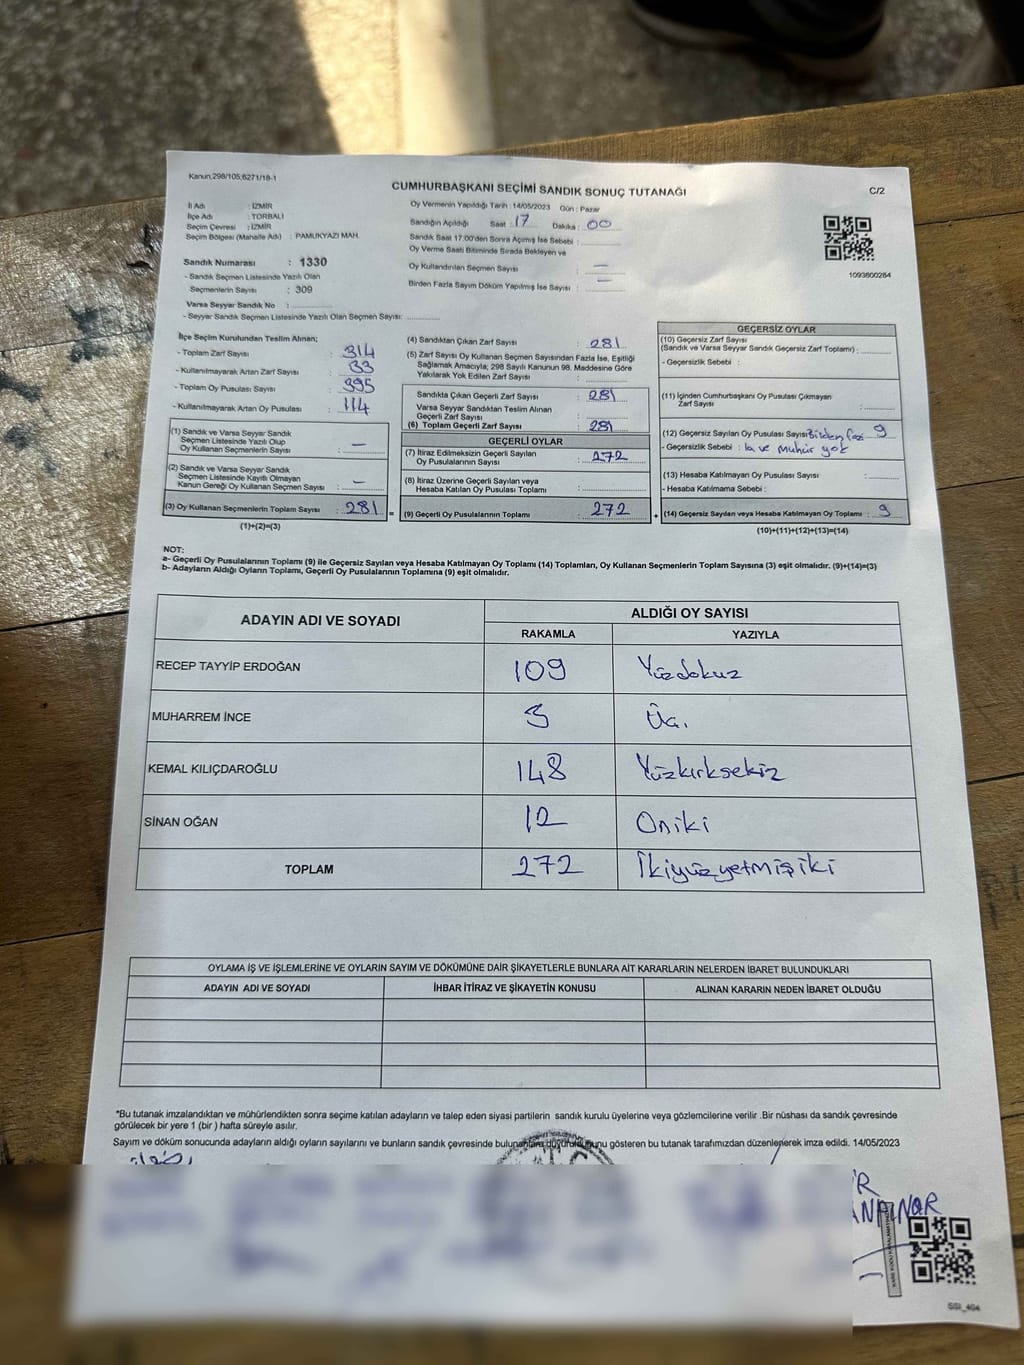 Kanun;298/105;6271/18-1
CUMHURBAŞKANI SEÇİMİ SANDIK SONUÇ TUTANAĞI
C/2
İl Adı : İZMİR
İlçe Adı : TORBALI
Seçim Çevresi : İZMİR
Seçim Bölgesi (Mahalle Adı) : PAMUKYAZI MAH.
Sandık Numarası : 1330
- Sandık Seçmen Listesinde Yazılı Olan
Seçmenlerin Sayısı : 309
Varsa Seyyar Sandık No :
- Seyyar Sandık Seçmen Listesinde Yazılı Olan Seçmen Sayısı:
Oy Vermenin Yapıldığı Tarih : 14/05/2023 Gün : Pazar
Sandığın Açıldığı Saat : 17 Dakika : 00
Sandık Saat 17.00'den Sonra Açımış İse Sebebi :
Oy Verme Saati Bitiminde Sırada Bekleyen ve
Oy Kullandırılan Seçmen Sayısı : —
Birden Fazla Sayım Döküm Yapılmış İse Sayısı : —
1093800284
İlçe Seçim Kurulundan Teslim Alınan;
- Toplam Zarf Sayısı : 314
- Kullanılmayarak Artan Zarf Sayısı : 33
- Toplam Oy Pusulası Sayısı : 395
- Kullanılmayarak Artan Oy Pusulası : 114
(1) Sandık ve Varsa Seyyar Sandık
Seçmen Listesinde Yazılı Olup
Oy Kullanan Seçmenlerin Sayısı : —
(2) Sandık ve Varsa Seyyar Sandık
Seçmen Listesinde Kayıtlı Olmayan
Kanun Gereği Oy Kullanan Seçmen Sayısı : —
(3) Oy Kullanan Seçmenlerin Toplam Sayısı : 281
(1)+(2)=(3)
=
(4) Sandıktan Çıkan Zarf Sayısı : 281
(5) Zarf Sayısı Oy Kullanan Seçmen Sayısından Fazla İse, Eşitliği
Sağlamak Amacıyla; 298 Sayılı Kanunun 98. Maddesine Göre
Yakılarak Yok Edilen Zarf Sayısı :
Sandıkta Çıkan Geçerli Zarf Sayısı : 281
Varsa Seyyar Sandıktan Teslim Alınan
Geçerli Zarf Sayısı :
(6) Toplam Geçerli Zarf Sayısı : 281
GEÇERLİ OYLAR
(7) İtiraz Edilmeksizin Geçerli Sayılan
Oy Pusulalarının Sayısı : 272
(8) İtiraz Üzerine Geçerli Sayılan veya
Hesaba Katılan Oy Pusulası Toplamı :
(9) Geçerli Oy Pusulalarının Toplamı : 272
+
GEÇERSİZ OYLAR
(10) Geçersiz Zarf Sayısı
(Sandık ve Varsa Seyyar Sandık Geçersiz Zarf Toplamı) :
- Geçersizlik Sebebi :
(11) İçinden Cumhurbaşkanı Oy Pusulası Çıkmayan
Zarf Sayısı :
(12) Geçersiz Sayılan Oy Pusulası Sayısı : Birden faz 9
- Geçersizlik Sebebi : la ve mühür yok
(13) Hesaba Katılmayan Oy Pusulası Sayısı :
- Hesaba Katılmama Sebebi :
(14) Geçersiz Sayılan veya Hesaba Katılmayan Oy Toplamı : 9
(10)+(11)+(12)+(13)=(14)
NOT:
a- Geçerli Oy Pusulalarının Toplamı (9) ile Geçersiz Sayılan veya Hesaba Katılmayan Oy Toplamı (14) Toplamları, Oy Kullanan Seçmenlerin Toplam Sayısına (3) eşit olmalıdır. (9)+(14)=(3)
b- Adayların Aldığı Oyların Toplamı, Geçerli Oy Pusulalarının Toplamına (9) eşit olmalıdır.
ADAYIN ADI VE SOYADI
ALDIĞI OY SAYISI
RAKAMLA YAZIYLA
RECEP TAYYİP ERDOĞAN 109 Yüzdokuz
MUHARREM İNCE 3 Üç.
KEMAL KILIÇDAROĞLU 148 Yüzkırksekiz
SİNAN OĞAN 12 Oniki
TOPLAM 272 İkiyüzyetmişiki
OYLAMA İŞ VE İŞLEMLERİNE VE OYLARIN SAYIM VE DÖKÜMÜNE DAİR ŞİKAYETLERLE BUNLARA AİT KARARLARIN NELERDEN İBARET BULUNDUKLARI
ADAYIN ADI VE SOYADI İHBAR İTİRAZ VE ŞİKAYETİN KONUSU ALINAN KARARIN NEDEN İBARET OLDUĞU
*Bu tutanak imzalandıktan ve mühürlendikten sonra seçime katılan adayların ve talep eden siyasi partilerin sandık kurulu üyelerine veya gözlemcilerine verilir .Bir nüshası da sandık çevresinde
görülecek bir yere 1 (bir ) hafta süreyle asılır.
Sayım ve döküm sonucunda adayların aldığı oyların sayılarını ve bunların sandık çevresinde gösteren bu tutanak tarafımızdan düzenlenerek imza edildi. 14/05/2023
SSI_404